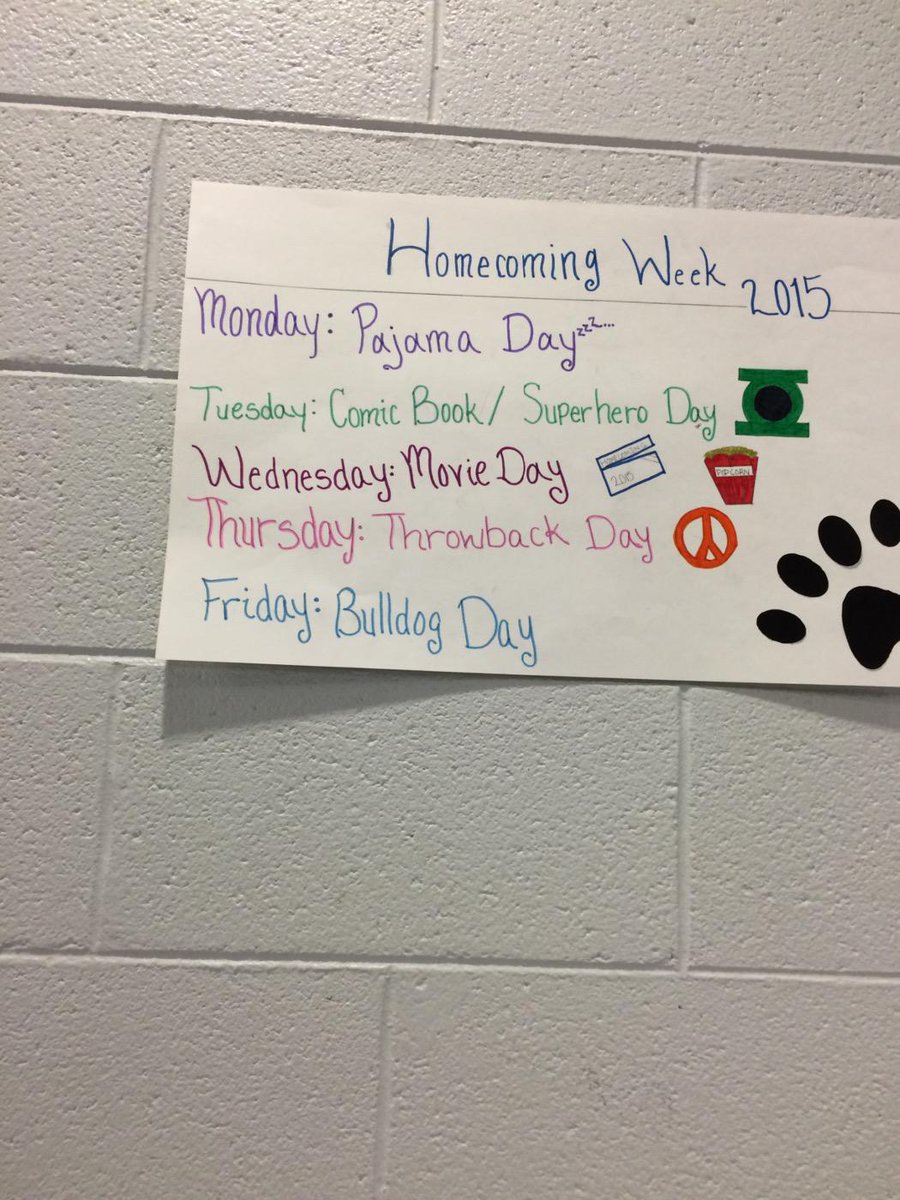 Homecoming Week 2015
Monday: Pajama Day zzz...
Tuesday: Comic Book/ Superhero Day
Wednesday: Movie Day
2015
POPCORN
Thursday: Throwback Day
Friday: Bulldog Day